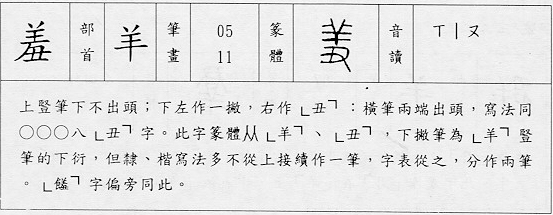 羞 部首 羊 筆畫 05 11 篆體 羞 音讀 ㄒㄧㄡ
上豎筆下不出頭；下左作一撇，右作「丑」：橫筆兩端出頭，寫法同
○○○八「丑」字。此字篆體从「羊」、「丑」，下撇筆為「羊」豎
筆的下衍，但隸、楷寫法多不從上接續作一筆，字表從之，分作兩筆
。「饈」字偏旁同此。